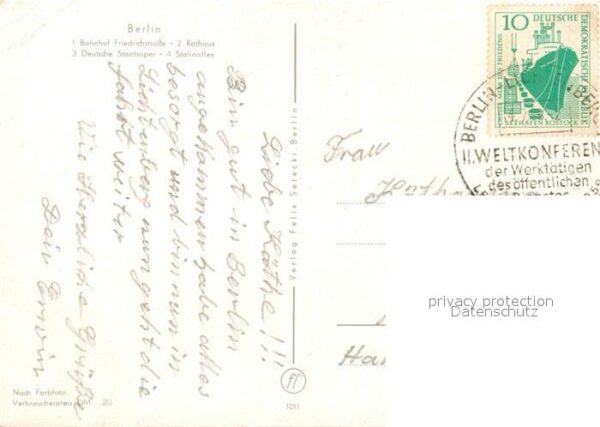 Berlin
1 Bahnhof Friedrichstraße • 2 Rathaus
3 Deutsche Staatsoper • 4 Stalinallee
Liebe Käthe!!!
Bin gut in Berlin
angekommen habe alles
besorgt und bin nun in
Lichtenberg nun geht die
fahrt weiter
Viele Herzliche Grüße
Dein Erwin
Nach Farbfoto
Verbraucherpreis DM -.20
Verlag Felix Setecki, Berlin
1011
Frau
10 DEUTSCHE
DEMOKRATISCHE REPUBLIK
SEEHAFEN ROSTOCK
BERLIN
II. WELTKONFEREN
der Werktätigen
des öffentlichen
privacy protection
Datenschutz